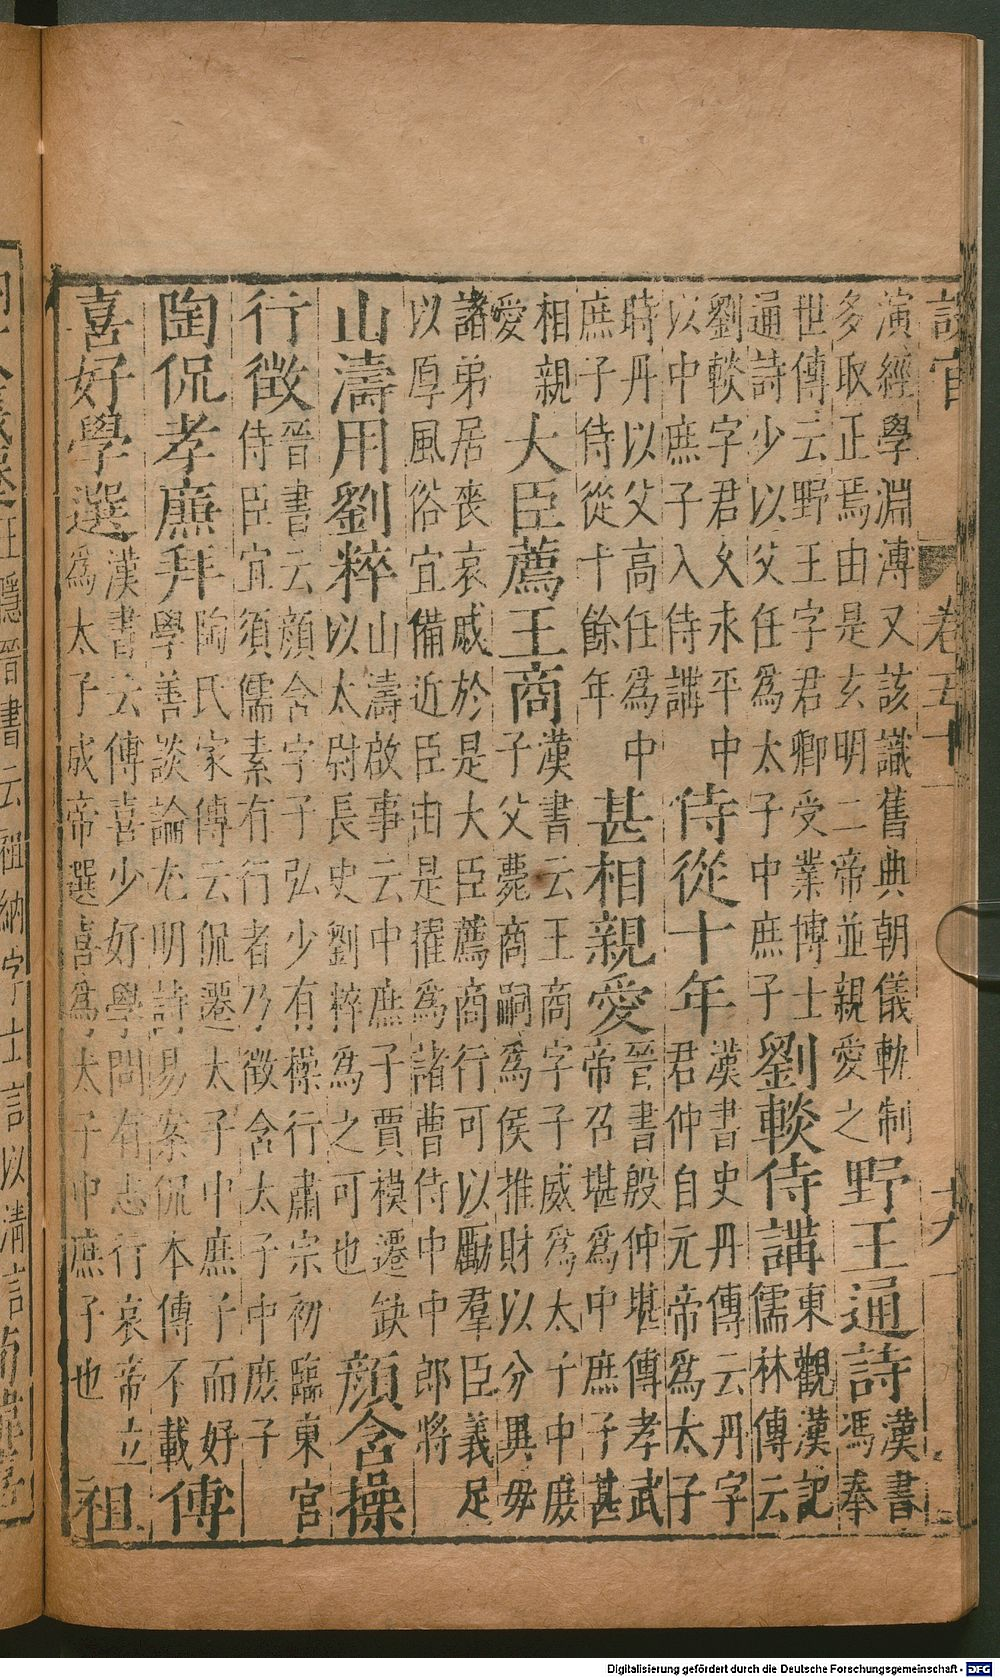 設官 卷五十 十九
演經學淵溥又該識舊典朝儀軌制
多取正焉由是玄明二帝並親愛之
野王通詩
漢書
馮奉
世傳云野王字君卿受業博士
通詩少以父任為太子中庶子
劉䡾侍講
東觀漢記
儒林傳云
劉䡾字君文永平中
以中庶子入侍講
侍從十年
漢書史丹傳云丹字
君仲自元帝為太子
時丹以父高任為中
庶子侍從十餘年
甚相親愛
晉書殷仲堪傳孝武
帝召堪為中庶子甚
相親
愛
大臣薦王商
漢書云王商字子威為太子中庶
子父薨商嗣為侯推財以分異母
諸弟居喪哀戚於是大臣薦商行可以勵羣臣義足
以厚風俗宜備近臣由是擢為諸曹侍中中郎將
山濤用劉粹
山濤啟事云中庶子賈模遷缺
以太尉長史劉粹為之可也
顏含操
行徵
晉書云顏含字子弘少有操行肅宗初臨東宮
侍臣宜須儒素有行者乃徵含太子中庶子
陶侃孝廉拜
陶氏家傳云侃遷太子中庶子而好
學善談論尤明詩易案侃本傳不載
傅
喜好學選
漢書云傅喜少好學問有志行哀帝立
為太子成帝選喜為太子中庶子也
祖
王隱晉書云祖納字士言以清言
Digitalisierung gefördert durch die Deutsche Forschungsgemeinschaft - DFG